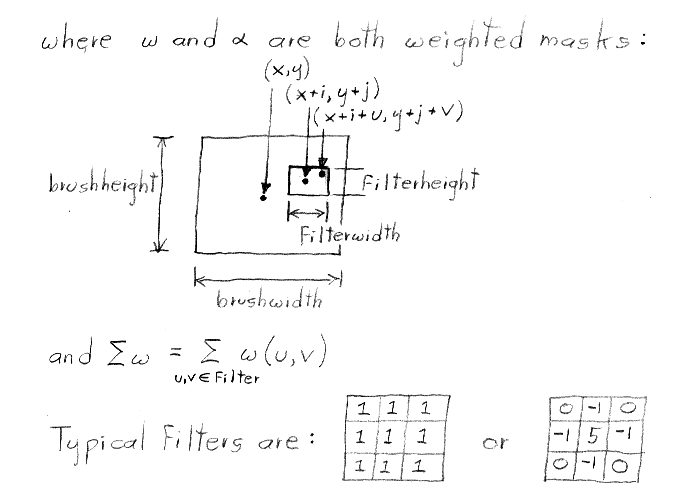 where ω and α are both weighted masks:
(x,y)
(x+i, y+j)
(x+i+u, y+j+v)
brushheight
Filterheight
Filterwidth
brushwidth
and Σω = Σ ω(u,v)
u,v ∈ Filter
Typical Filters are:
1 1 1
1 1 1
1 1 1
or
0 -1 0
-1 5 -1
0 -1 0